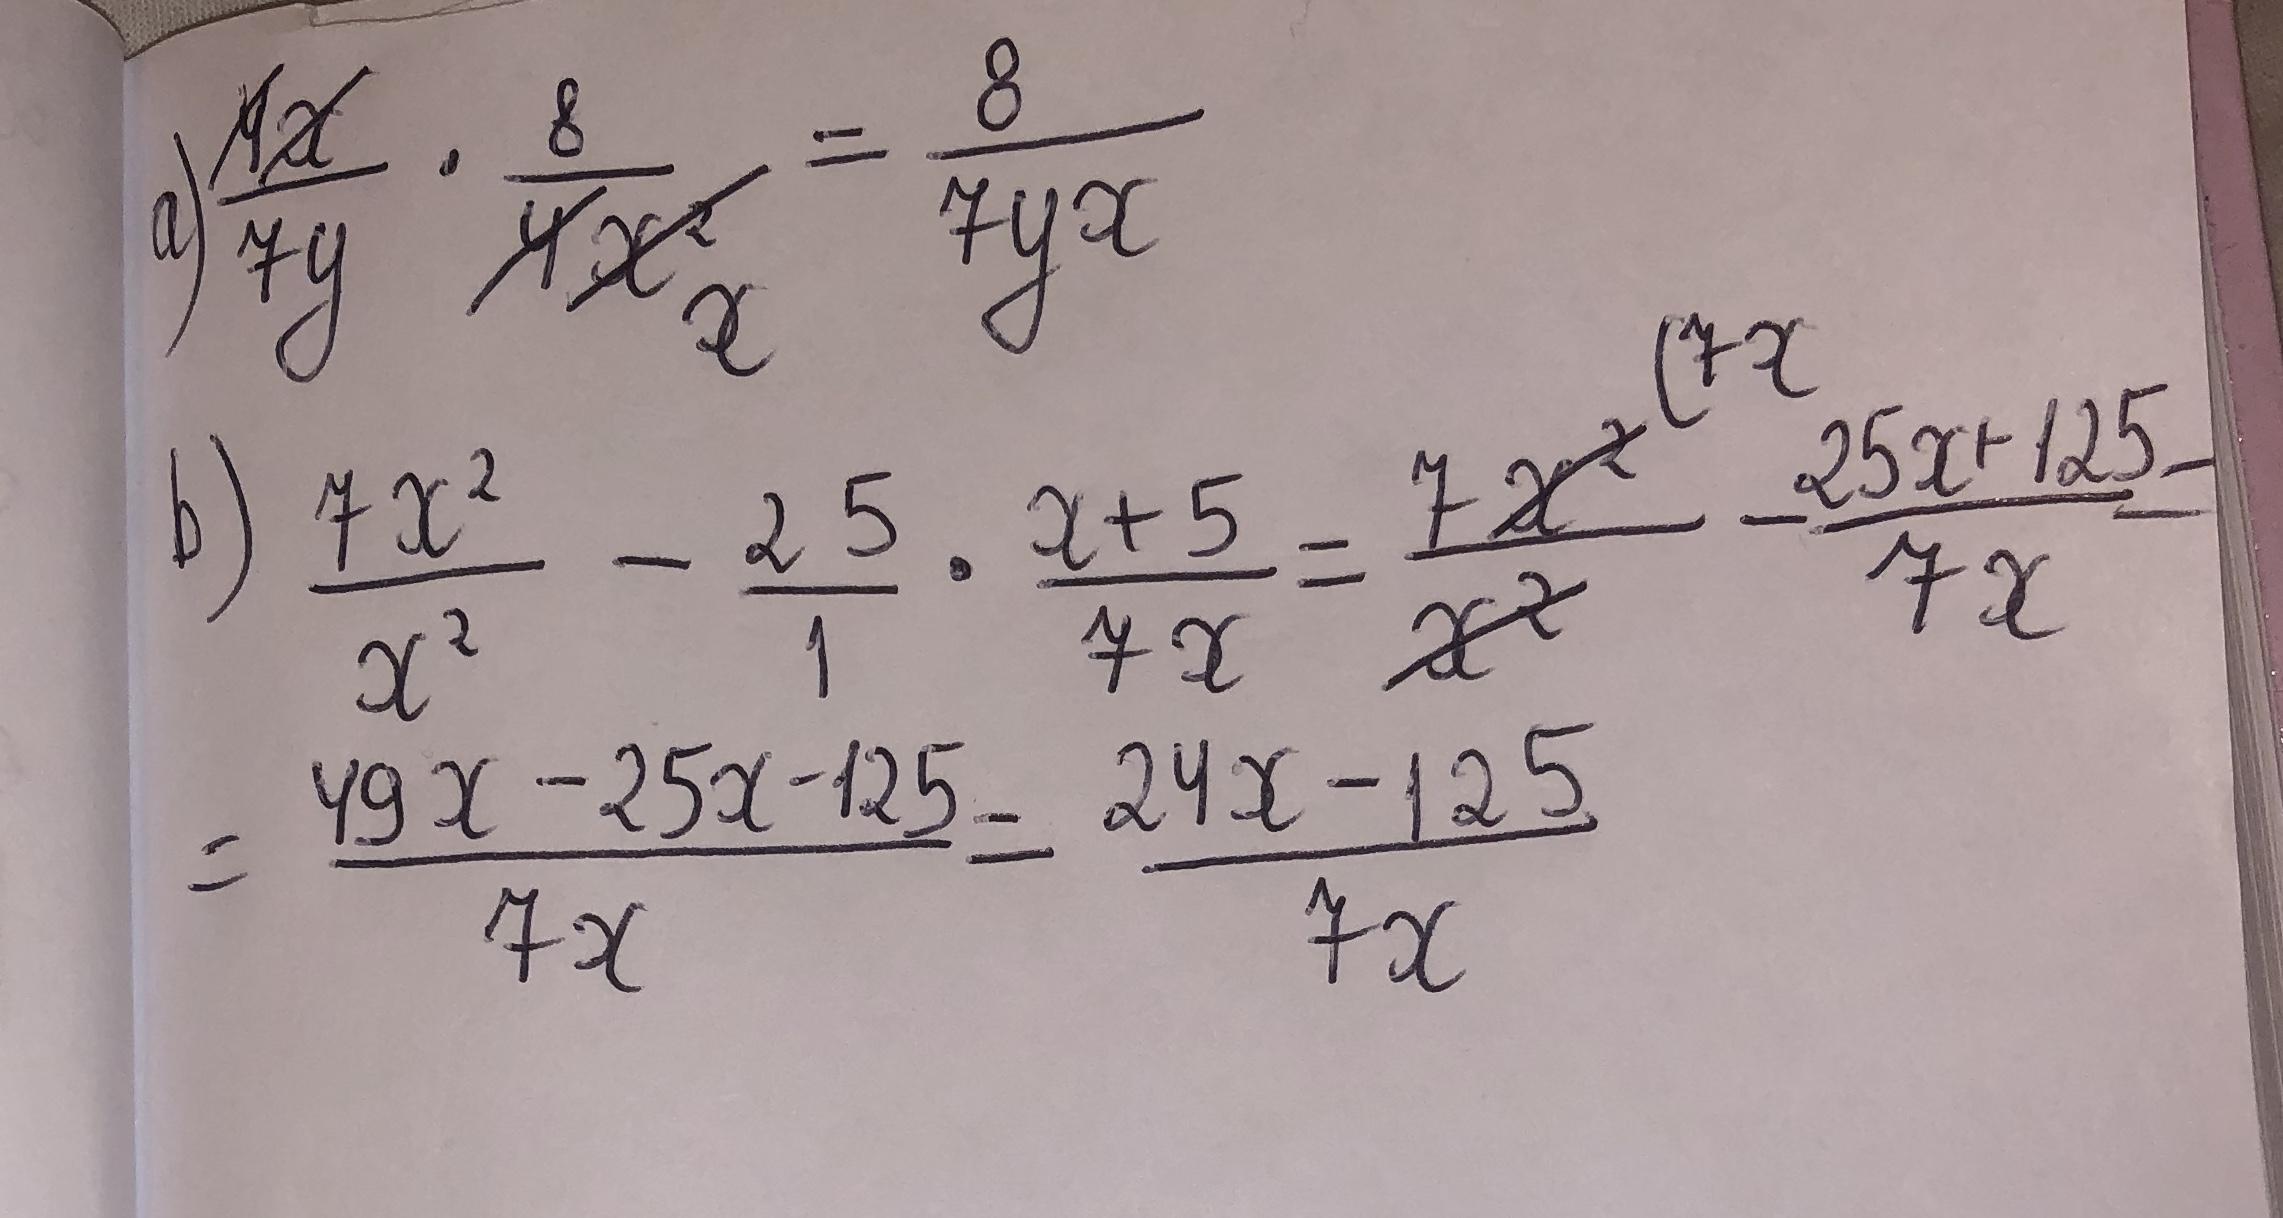 a) 4x/7y · 8/4x² x = 8/7yx
b) 7x²/x² - 25/1 · x+5/7x = 7x²/x² (7x - 25x+125/7x =
= 49x-25x-125/7x = 24x-125/7x